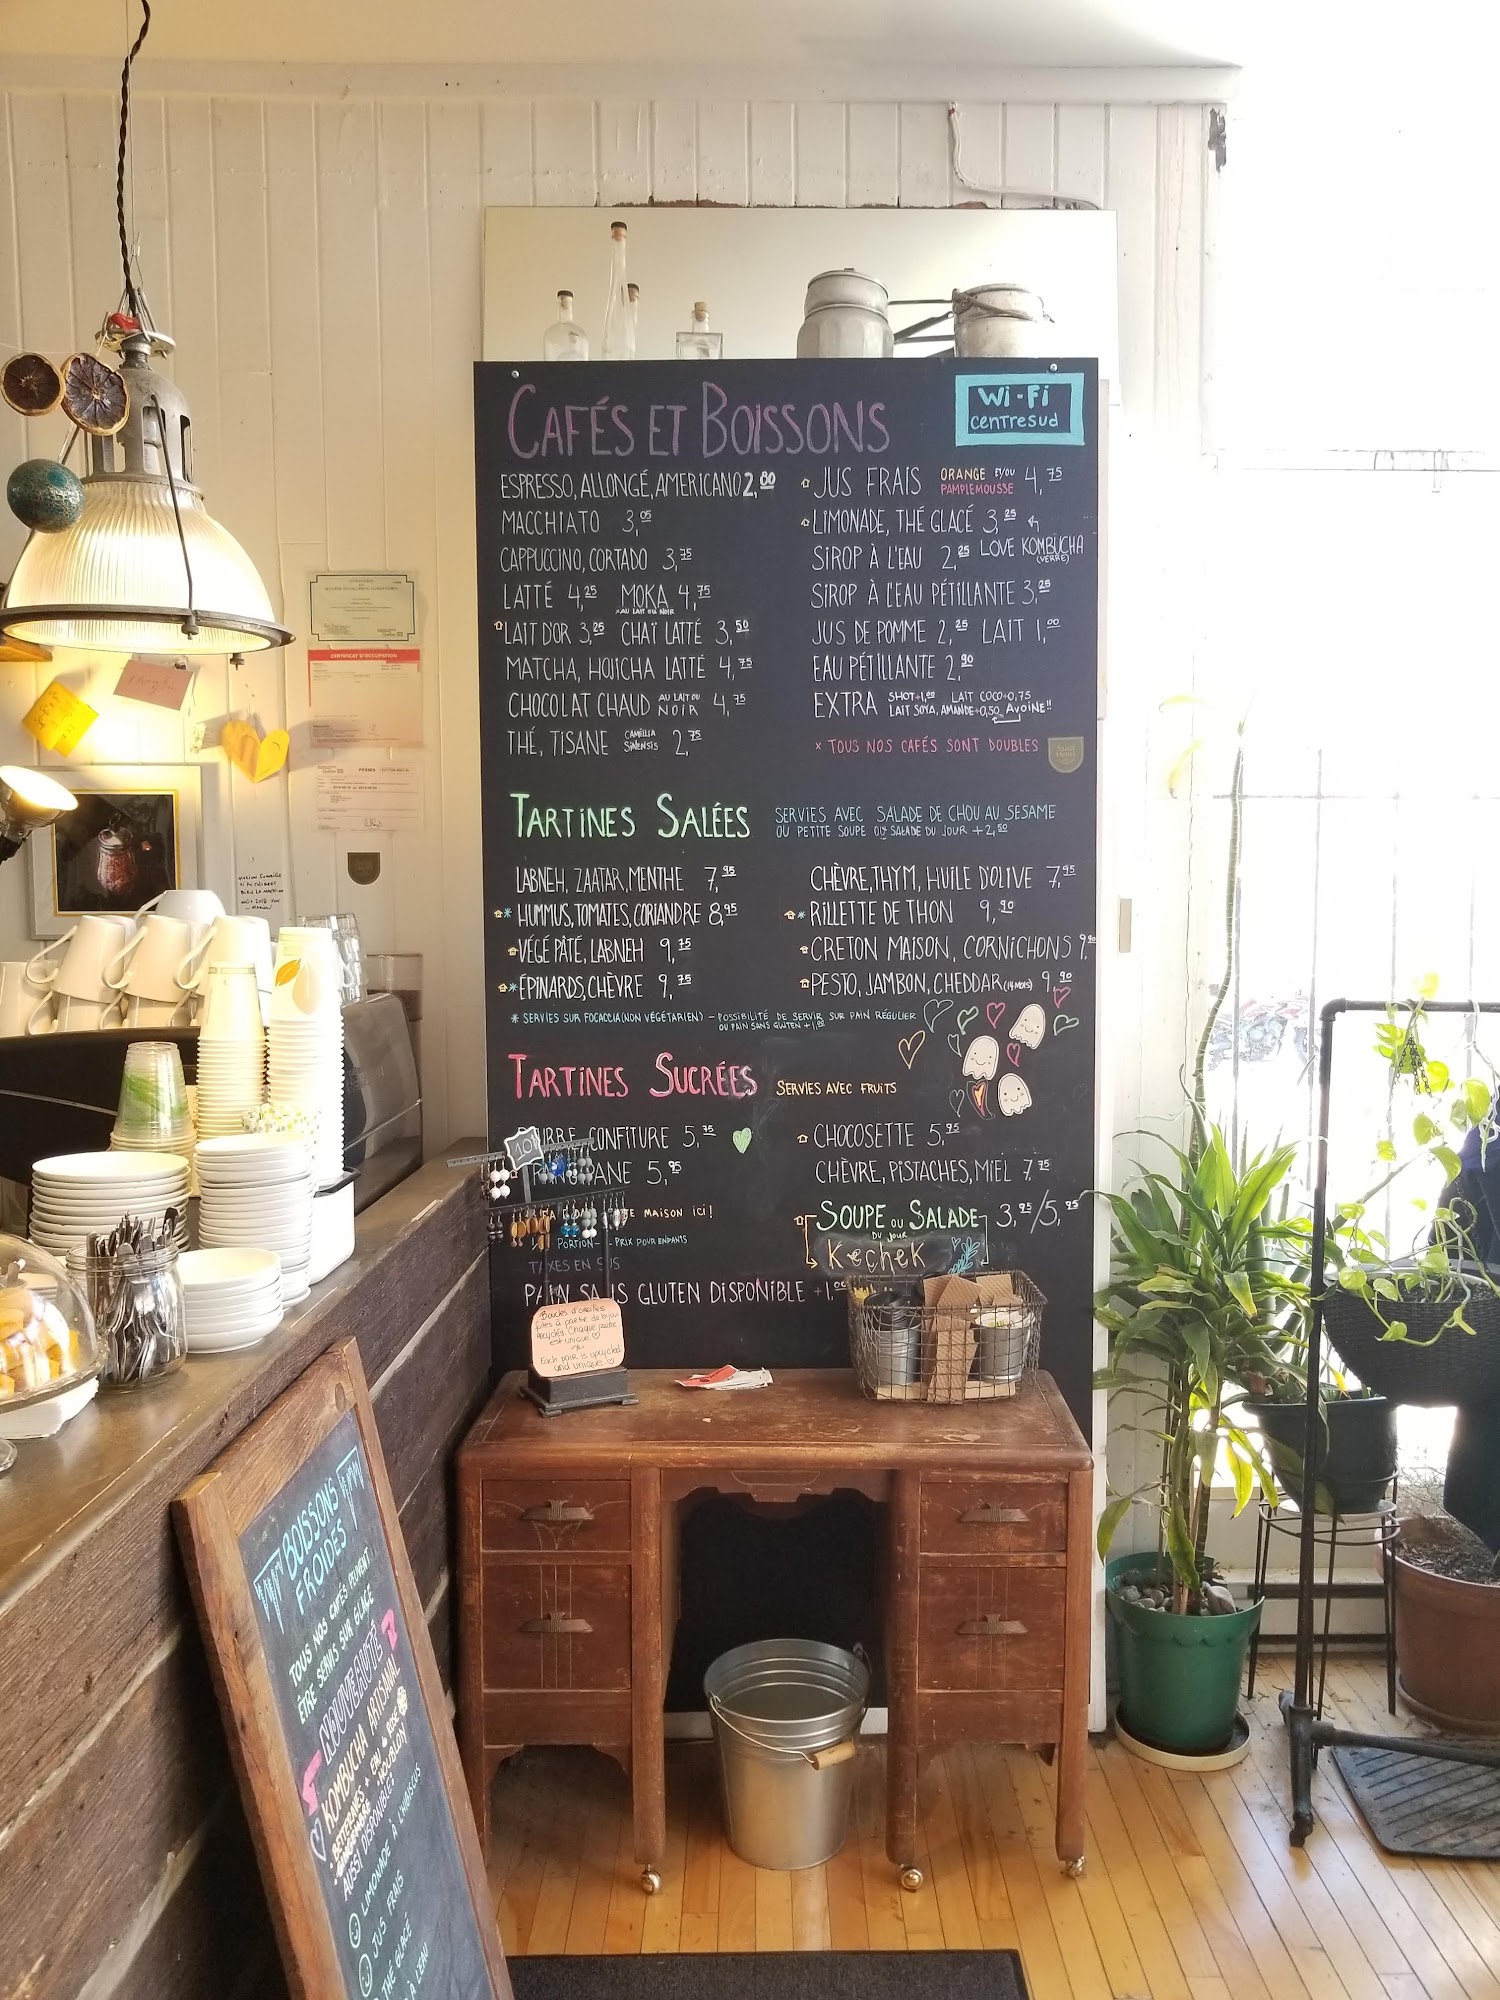 CAFÉS ET BOISSONS
WI-FI
CENTRESUD
ESPRESSO, ALLONGÉ, AMERICANO 2,80
MACCHIATO 3,05
CAPPUCCINO, CORTADO 3,75
LATTÉ 4,25 MOKA 4,75
*AU LAIT OU NOIR
LAIT D'OR 3,25 CHAÏ LATTÉ 3,50
MATCHA, HOJICHA LATTÉ 4,75
CHOCOLAT CHAUD AU LAIT OU NOIR 4,75
THÉ, TISANE CAMÉLLIA SINENSIS 2,75
JUS FRAIS ORANGE ET/OU PAMPLEMOUSSE 4,75
LIMONADE, THÉ GLACÉ 3,25
SIROP À L'EAU 2,25 LOVE KOMBUCHA
(VERRE)
SIROP À L'EAU PÉTILLANTE 3,25
JUS DE POMME 2,25 LAIT 1,00
EAU PÉTILLANTE 2,90
EXTRA SHOT+1,00 LAIT COCO+0,75
LAIT SOYA, AMANDE+0,50 AVOINE!!
* TOUS NOS CAFÉS SONT DOUBLES
TARTINES SALÉES
SERVIES AVEC SALADE DE CHOU AU SESAME
OU PETITE SOUPE OU SALADE DU JOUR +2,50
LABNEH, ZAATAR, MENTHE 7,95
* HUMMUS, TOMATES, CORIANDRE 8,95
VÉGÉ PÂTÉ, LABNEH 9,75
* ÉPINARDS, CHÈVRE 9,75
CHÈVRE, THYM, HUILE D'OLIVE 7,95
* RILLETTE DE THON 9,90
CRETON MAISON, CORNICHONS 9,90
PESTO, JAMBON, CHEDDAR (14 MOIS) 9,90
* SERVIES SUR FOCACCIA (NON VÉGÉTARIEN) - POSSIBILITÉ DE SERVIR SUR PAIN RÉGULIER
OU PAIN SANS GLUTEN +1,00
TARTINES SUCRÉES SERVIES AVEC FRUITS
CONFITURE 5,75
5,95
CHOCOSETTE 5,95
CHÈVRE, PISTACHES, MIEL 7,75
MAISON ICI!
PORTION - PRIX POUR ENFANTS
TAXES EN SUS
PAIN SANS GLUTEN DISPONIBLE +1,00
SOUPE OU SALADE 3,95/5,95
DU JOUR
KECHEK
10
Boucles d'oreilles
faites à partir de bijoux
recyclés. Chaque paire
est unique
Each pair is upcycled
and unique!
CERTIFICAT D'OCCUPATION
PERMIS
BOISSONS
FROIDES
TOUS NOS CAFÉS PEUVENT
ÊTRE SERVIS SUR GLACE
NOUVEAUTÉ
KOMBUCHA ARTISANAL
HOUBLON
AUSSI DISPONIBLES
LIMONADE À L'HIBISCUS
JUS FRAIS
THÉ GLACÉ
À L'EAU